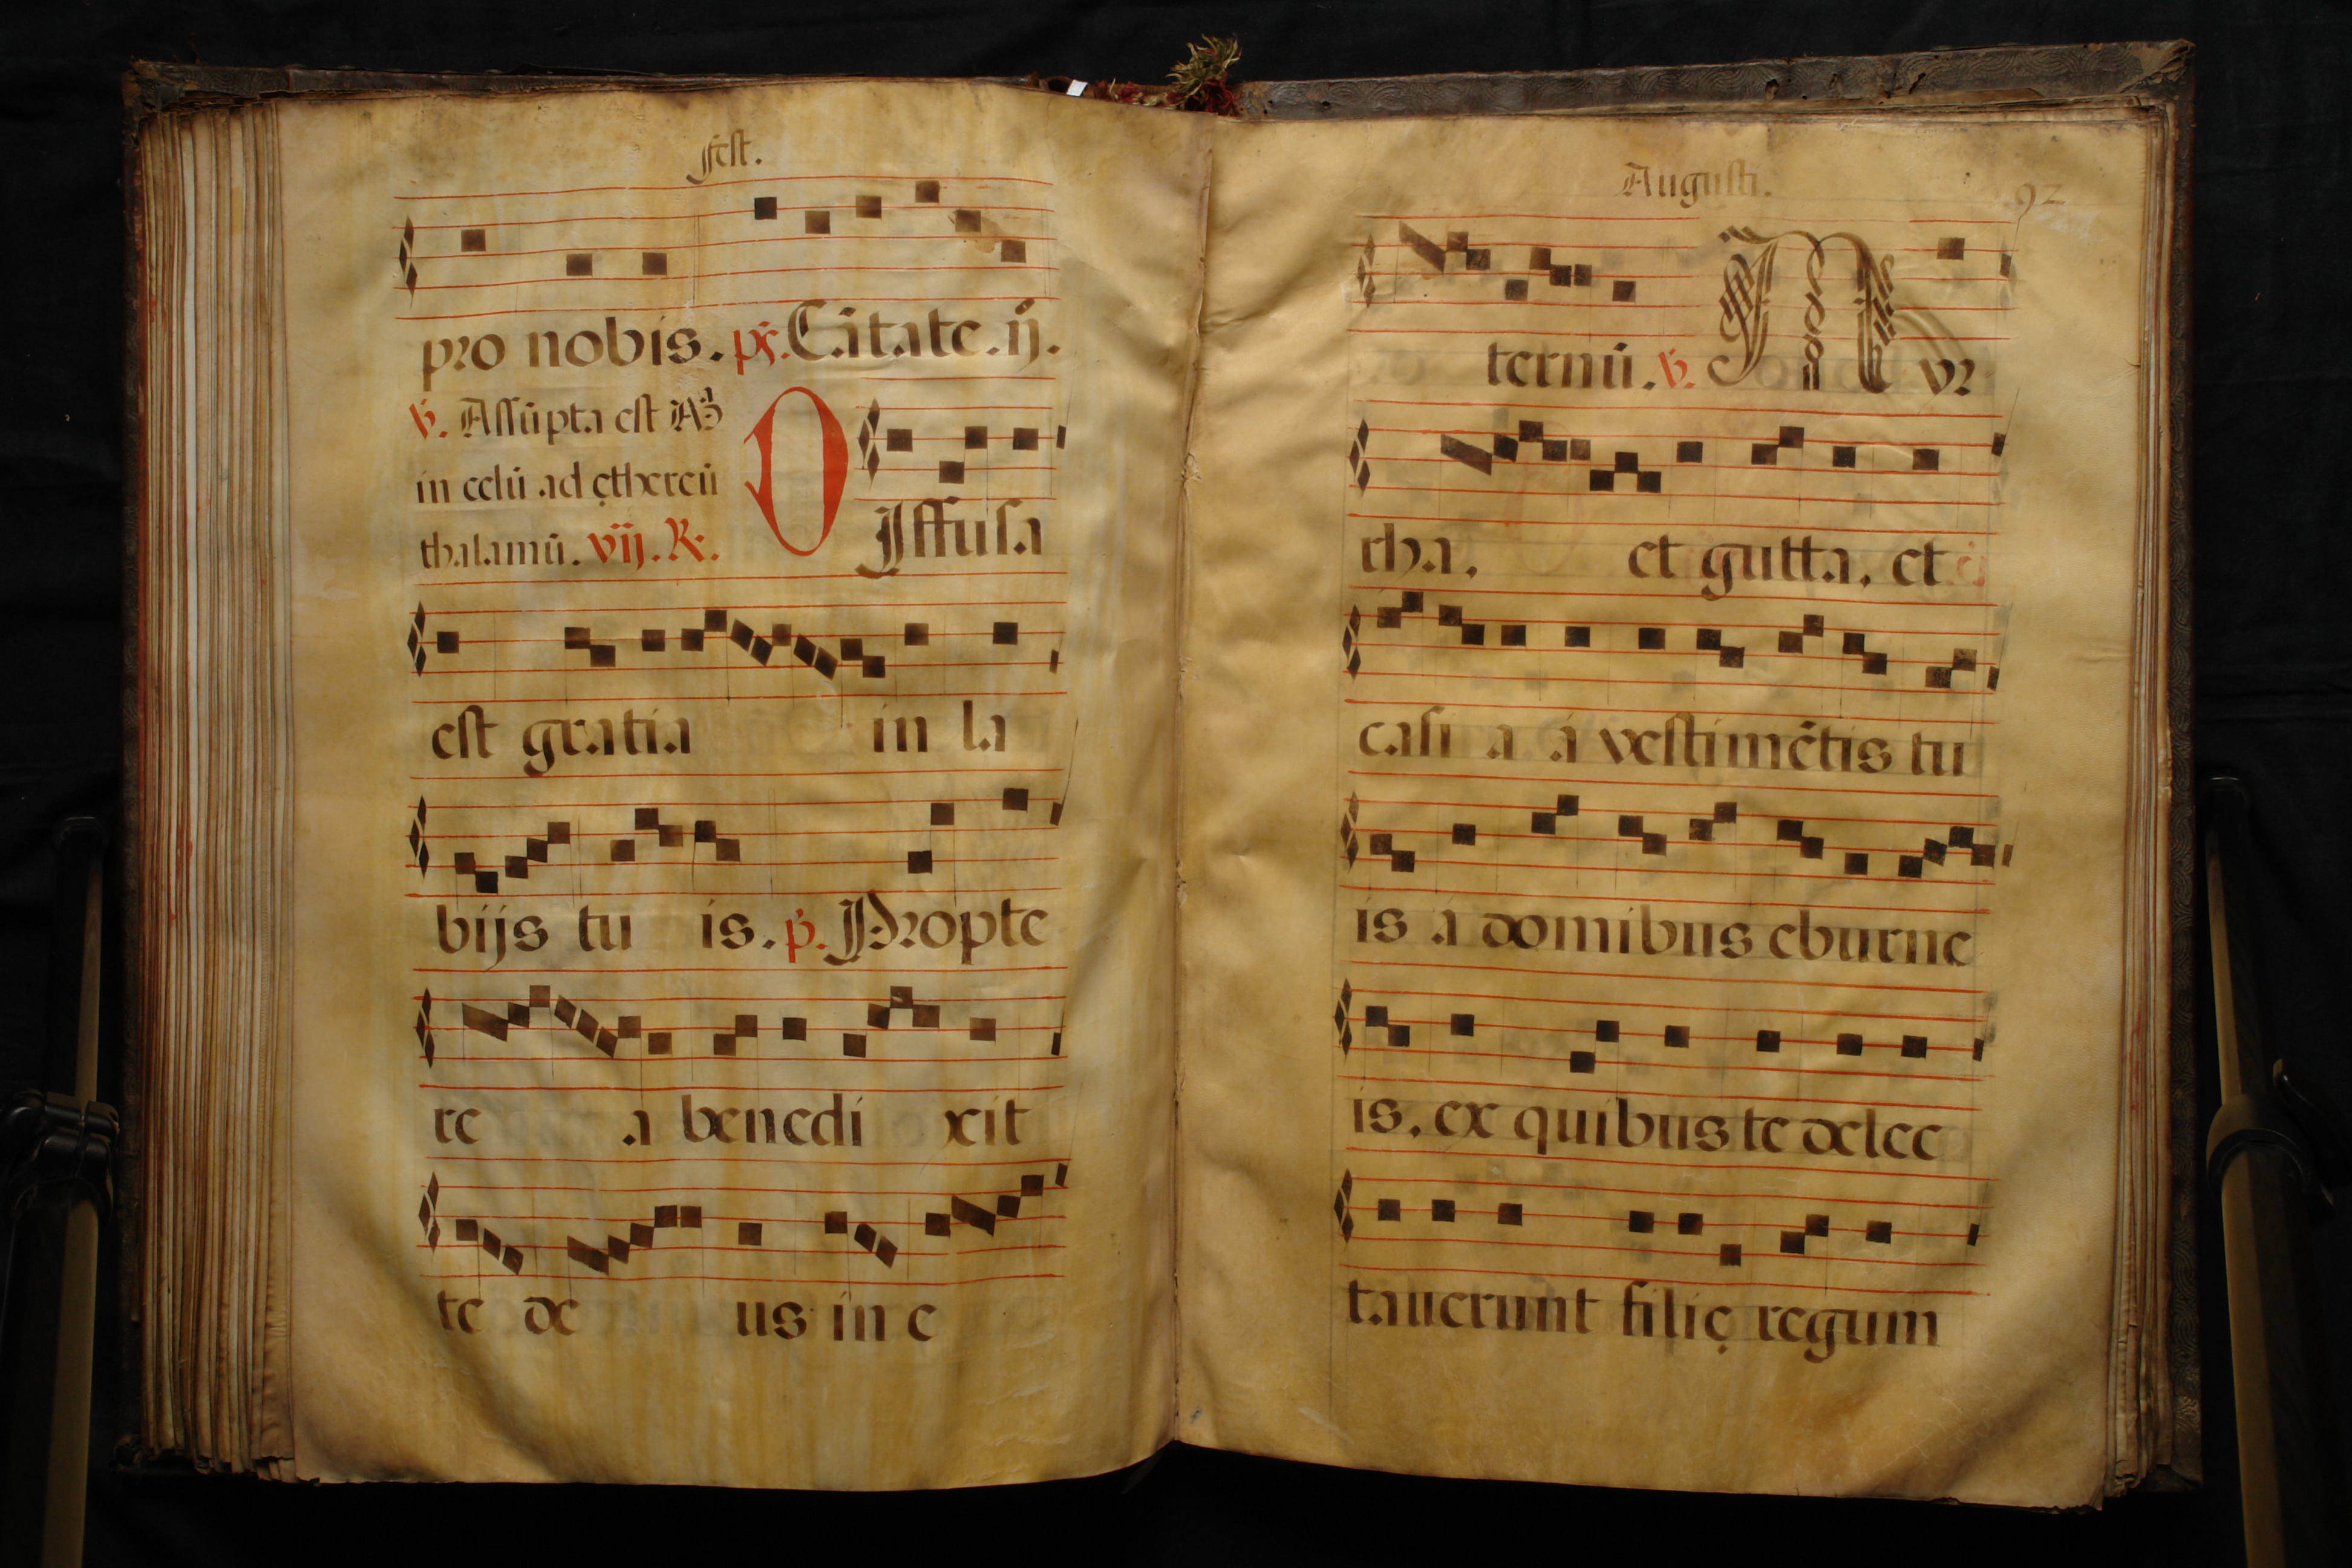 Fest.
pro nobis. ps. Cātate. ij.
v. Assūpta est Mᵃ
in celū ad ęthereū
thalamū. vij. R.
DIffusa
est gratia in la
bijs tu is. p. Propte
re a benedi xit
te de us in e
Augusti. 92
ternū. v. Myr
rha. et gutta. et
casi a á vestimētis tu
is á domibus eburne
is. ex quibus te delec
tauerunt filię regum